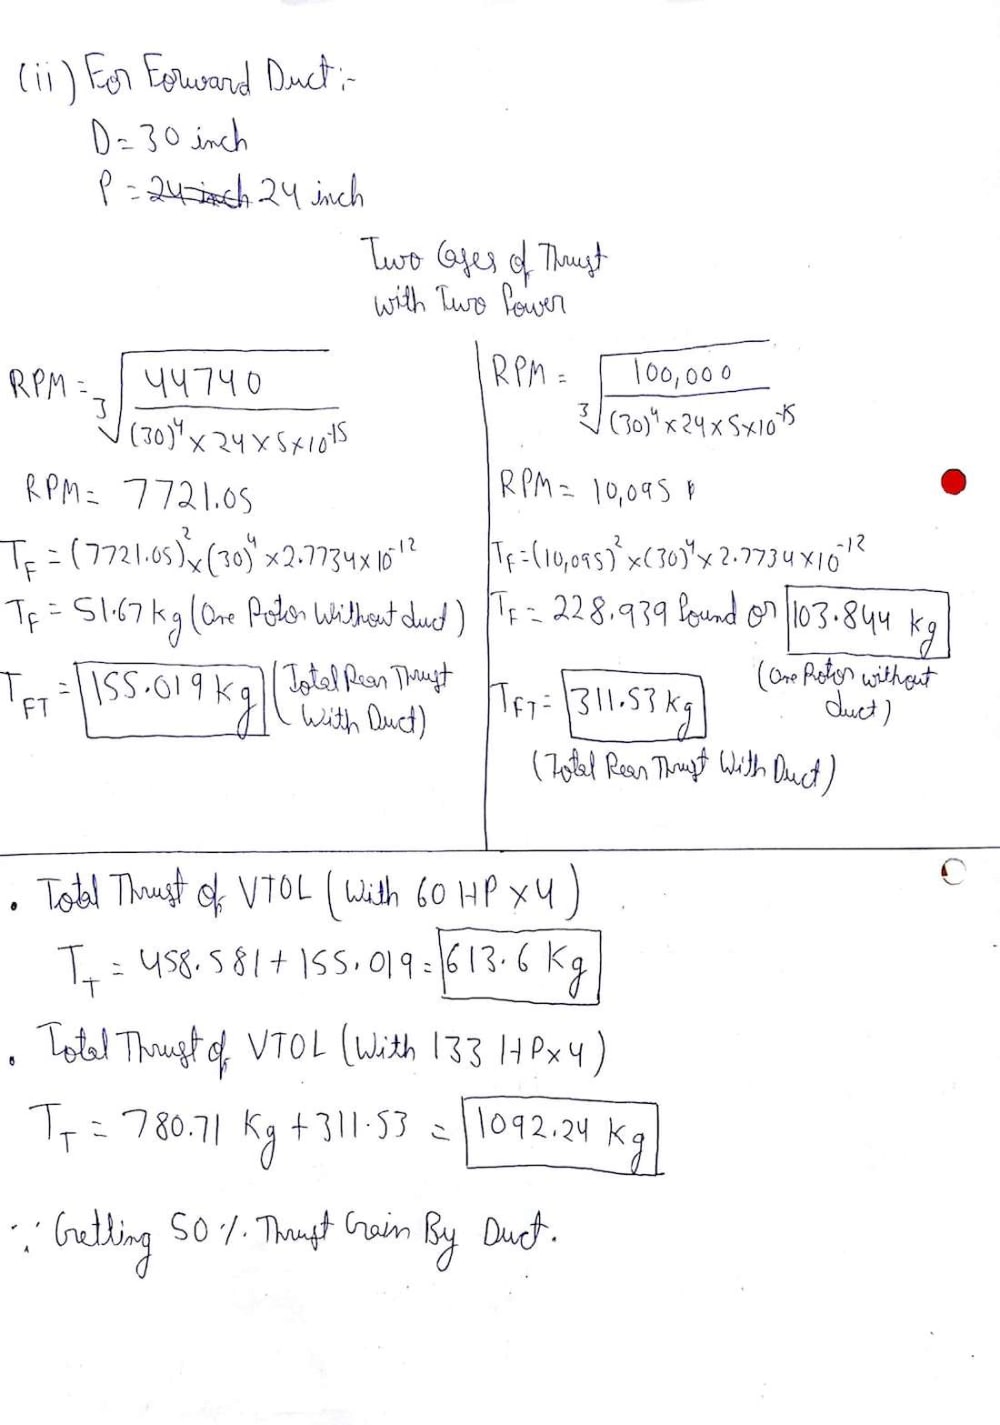 (ii) For Forward Duct:-
D = 30 inch
P = 24 inch 24 inch
Two Cases of Thrust
with Two Power
RPM = ³√ 44740 / (30)⁴ × 24 × 5×10⁻¹⁵
RPM = 7721.05
T_F = (7721.05)² × (30)⁴ × 2.7734 × 10⁻¹²
T_F = 51.67 kg (One Rotor Without duct)
T_FT = 155.019 kg (Total Rear Thrust
With Duct)
RPM = ³√ 100,000 / (30)⁴ × 24 × 5×10⁻¹⁵
RPM = 10,095
T_F = (10,095)² × (30)⁴ × 2.7734 × 10⁻¹²
T_F = 228.939 Pound or 103.844 kg
(One Rotor without
duct)
T_FT = 311.53 kg
(Total Rear Thrust With Duct)
• Total Thrust of VTOL (With 60 HP × 4)
T_T = 458.581 + 155.019 = 613.6 Kg
• Total Thrust of VTOL (With 133 HP × 4)
T_T = 780.71 Kg + 311.53 = 1092.24 Kg
∵ Getting 50 % Thrust Gain By Duct.